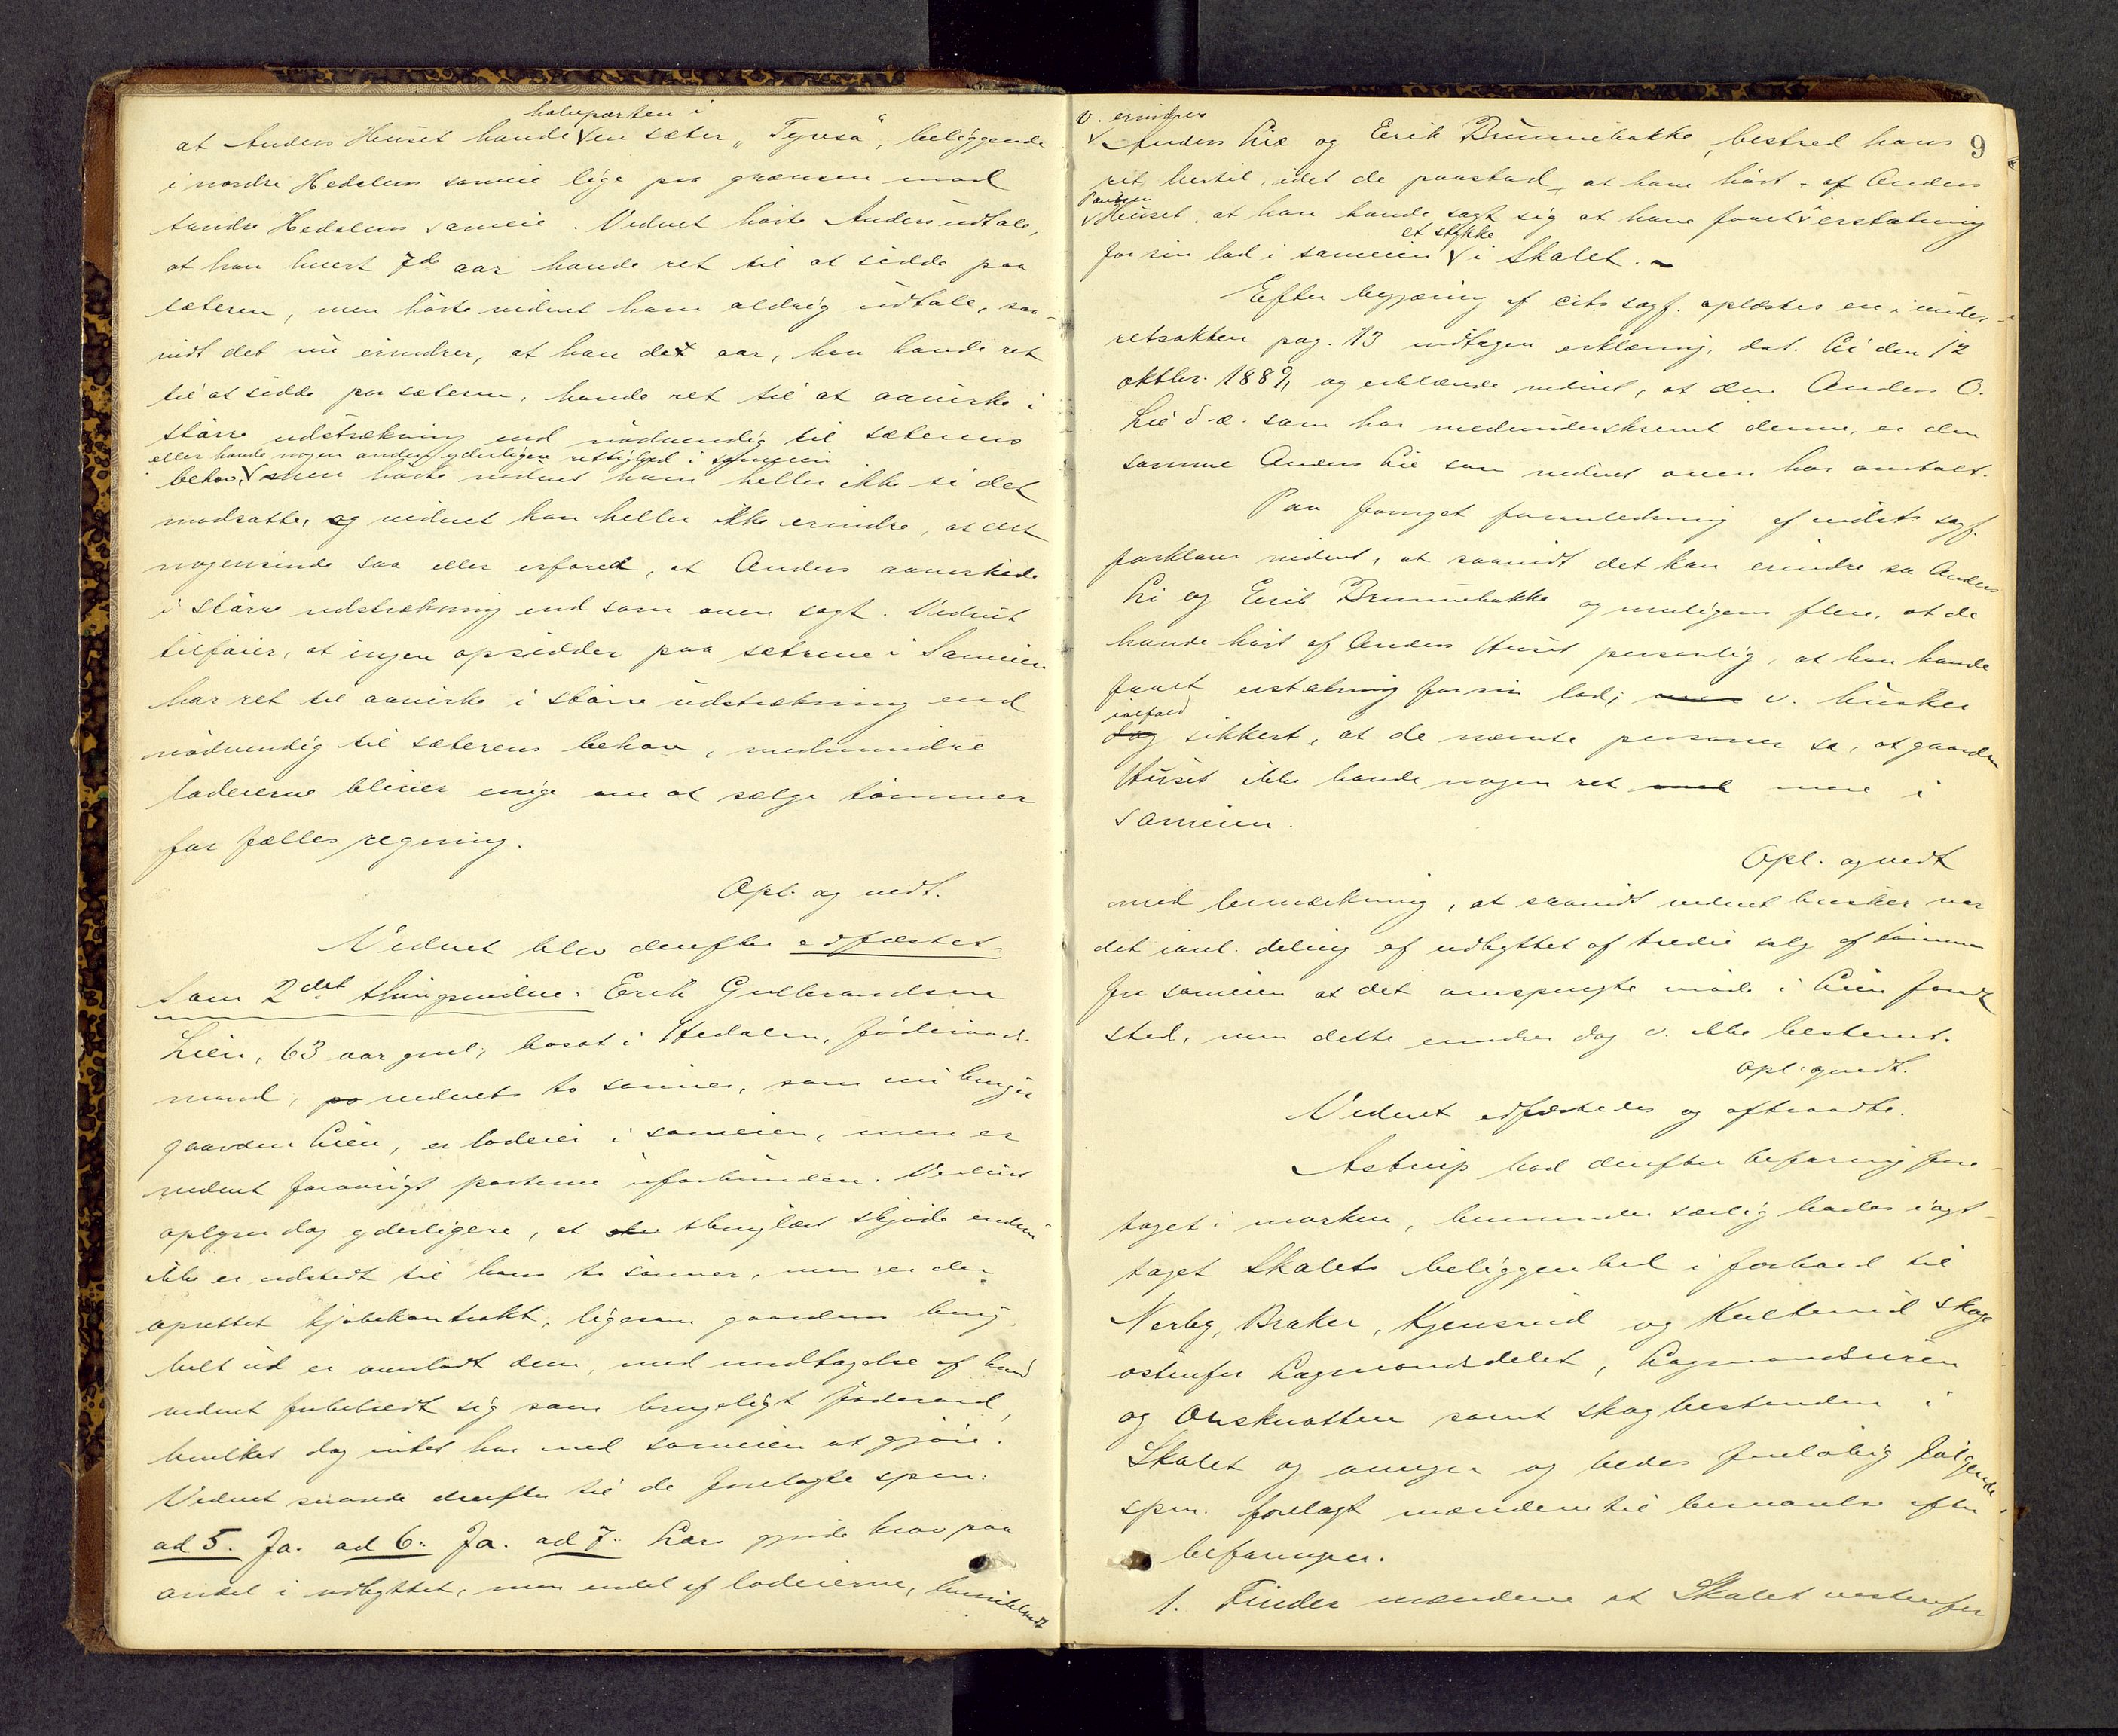 halvparten i
at Anders Huset havde V en sæter „Tyvsa“, beliggende
i nordre Hedalens sameie lige paa grænsen mod
søndre Hedalens sameie. Vidnet hørte Anders udtale,
at han hvert 7de aar havde ret til at sidde paa
sæteren, men hørte vidnet ham aldrig udtale, saa-
vidt det nu erindrer, at han det aar, han havde ret
til at sidde paa sæteren, havde ret til at aavirke i
større udstrækning end nødvendig til sæterens
eller havde nogen anden yderligere rettighed i sameien
behov, V men hørte vidnet ham heller ikke si det
modsatte, og vidnet kan heller ikke erindre, at det
nogensinde saa eller erfared, at Anders aavirkede
i større udstrækning end som oven sagt. Vidnet
tilføier, at ingen opsidder paa sætrene i Sameien
har ret til aavirke i større udstrækning end
nødvendig til sæterens behov, medmindre
lodeierne bliver enige om at sælge tømmer
for fælles regning.
Opl. og vedt.
Vidnet blev derefter edfæstet.
Som 2det thingsvidne: Erik Gulbrandsen
Lien, 63 aar gml, bosat i Hedalen, føderaads-
mand, vidnets to sønner, som nu bruger
gaarden Lien, er lodeier i sameien, men er
vidnet forøvrigt parterne uforbunden. Vidnet
oplyser dog yderligere, at thinglæst skjøde endnu
ikke er udstedt til hans to sønner, men er der
oprettet kjøbekontrakt, ligesom gaardens brug
helt ud er overladt dem, med undtagelse af hvad
vidnet forbeholdt sig som brugeligt føderaad,
hvilket dog intet har med sameien at gjøre.
Vidnet svarede derefter til de forelagte spm:
ad 5. Ja. ad 6. Ja. ad 7. Lars gjorde krav paa
andel i udbyttet, men endel af lodeierne, hvoriblandt
9
v. erindres
V Anders Lie og Erik Brunnebakke, bestred hans
ret hertil, idet de paastod, at have hørt af Anders
Paulsen
V Huset at han havde sagt sig at have faaet V erstatning
et stykke
for sin lod i sameien V i Skalet.
Efter begjæring af cits sagf. oplæstes en i under-
retsakten pag. 113 indtagen erklæring, dat. Li den 12
oktbr. 1889, og erklærede vidnet, at den Anders O.
Lie d.æ. som har medunderskrevet denne, er den
samme Anders Lie som vidnet oven har omtalt.
Paa fornyet foranledning af indsts sagf.
forklarer vidnet, at saavidt det kan erindre sa Anders
Li og Erik Brunnebakke og muligens flere, at de
havde hørt af Anders Huset personlig, at han havde
faaet erstatning for sin lod; v. husker
ialfald
sikkert, at de nævnte personer sa, at gaarden
Huset ikke havde nogen ret mere i
sameien.
Opl. og vedt
med bemærkning, at saavidt vidnet husker var
det ianl. deling af udbyttet af tredie salg af tømmer
fra sameien at det omspurgte møde i Lien fandt
sted, men dette erindrer dog v. ikke bestemt.
opl. og vedt.
Vidnet edfæstedes og aftraadte.
Astrup bad derefter befaring fore-
taget i marken, hvorunder særlig bades iagt-
taget Skalets beliggenhed i forhold til
Nerby, Braker, Kjensrud og Kulterud skoge
ostenfor Lagmandsdelet, Lagmandsuren
og Orsknatten samt skogbestanden i
Skalet og omegn og bedes foreløbig følgende
spm. forelagt mændene til besvarelse efter
befaringen.
1. Finder mændene at Skalet vestenfor